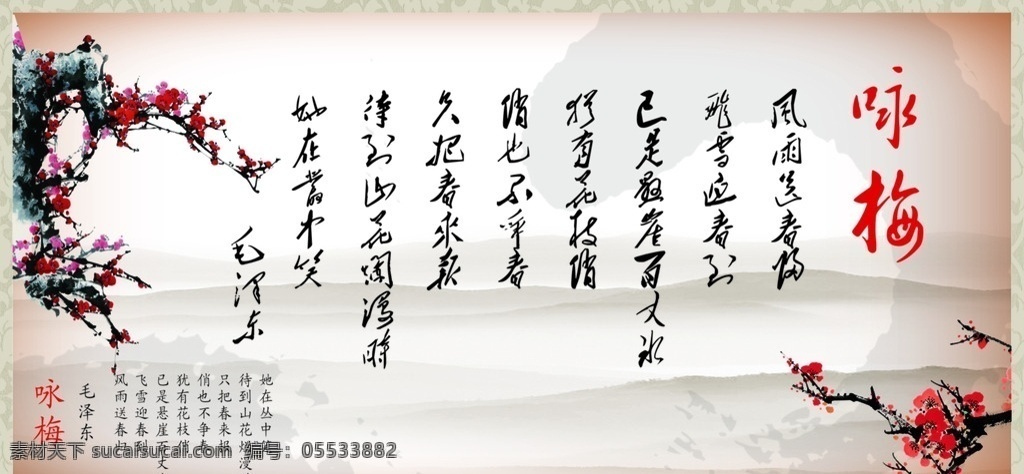 咏梅
風雨送春归
飛雪迎春到
已是懸崖百丈冰
犹有花枝俏
俏也不争春
只把春来报
待到山花烂漫时
她在丛中笑
毛泽东
咏梅
毛泽东
风雨送春归
飞雪迎春到
已是悬崖百丈
犹有花枝俏
俏也不争春
只把春来报
待到山花烂漫
她在丛中笑
素材天下 sucaisucai.com 编号：05533882